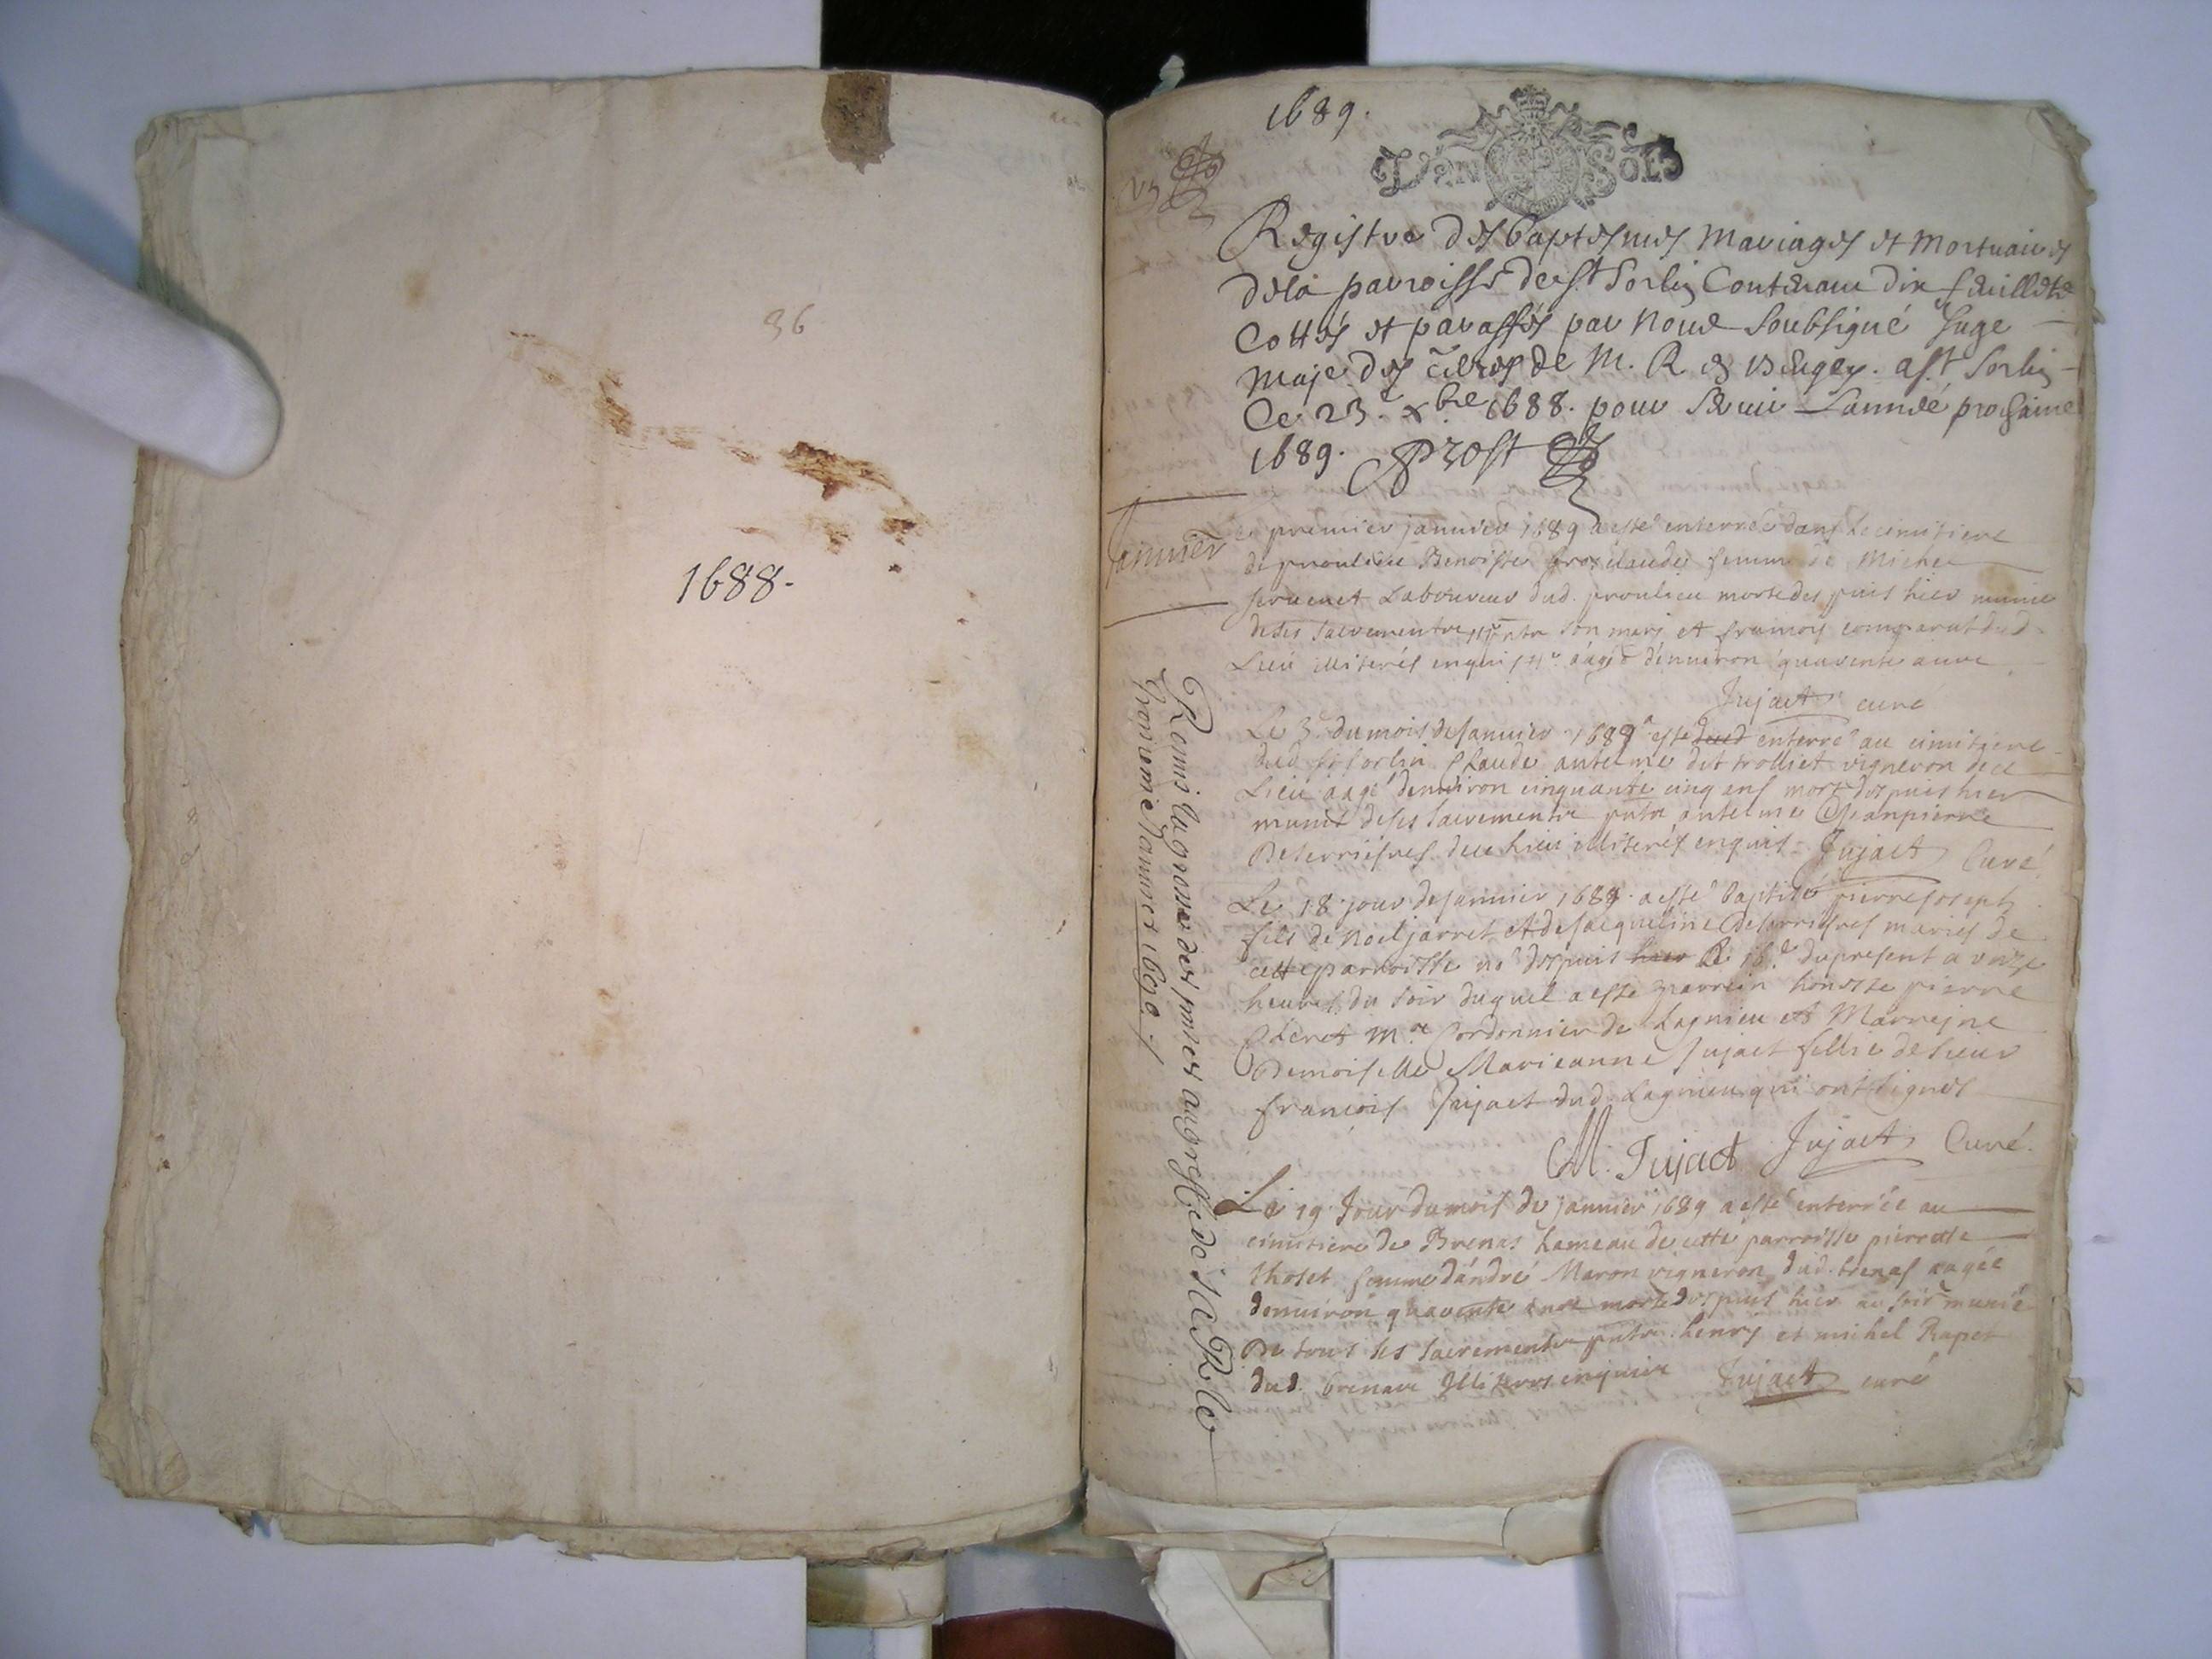 36
1688.
1689.
Vn Sols
Registre des baptesmes mariages et mortuaires
dela parroisse de st Sorlin Contenant dix feuillets
Cottés et paraffés par Nous Soubsigné Juge
Maje des terres de M. R. en Beugey. a st Sorlin
Ce 23.e xbre 1688. pour servir Lannée prochaine
1689. Prost
Janvier
premier janvier 1689 a esté enterrée dans le cimitiere
de proulieu Benoiste groz claude femme de Michel
Laboureur dud. proulieu morte despuis hier munie
de ses sacrements son mary et
Lieu illiterés enquis aagée d'enuiron quarente ans
Jujact curé
Le 3e du mois de Januier 1689 a esté dud enterré au cimitiere
dud st sorlin Claude antelme dit trolliet vigneron de ce
Lieu aagé denuiron cinquante cinq ans mort despuis hier
munit de ses sacrements pnts antelme Jeanpierre
Deserriesres de ce Lieu illiterés enquis Jujact Curé
Le 18 jour de januier 1689 a esté baptisé pierre joseph
fils de noel jarret et de jacqueline Deserriesres mariés de
cette parroisse né despuis hier le 16.e du present a vnze
heures du soir duquel a esté parrein honeste pierre
M.re Cordonnier de Lagnieu et Marreine
Demoiselle Marieanne Jujact fillie de sieur
françois Jujact dud Lagnieu qui ont signés
M. Jujact Jujact Curé.
Le 19 Jour du mois de januier 1689 a esté enterrée au
cimitiere de Brenas hameau de cette parroisse pierrette
thoset femme d'andré Maron vigneron dud. brenas aagée
denuiron quarente ans morte despuis hier au soir munie
De tous ses sacrements pnts henry et michel Rapet
dud. brenaz Illiteres enquis Jujact curé
Remis la grosse des pntes au greffe de
Januier 1690.